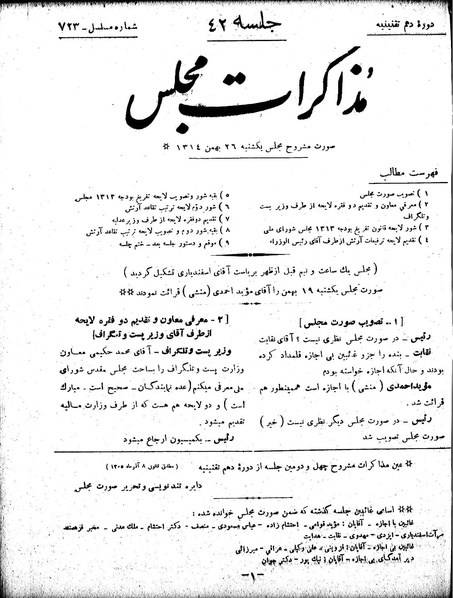 دورهٔ دهم تقنینیه
جلسه ۴۲
شماره مسلسل - ۷۲۳
مذاکرات مجلس
صورت مشروح مجلس یکشنبه ۲۶ بهمن ۱۳۱۴ *
فهرست مطالب
۱ ) تصویب صورت مجلس
۲ ) معرفی معاون و تقدیم دو فقره لایحه از طرف وزیر پست
وتلگراف
۳ ) شور لایحه قانون تفریغ بودجه ۱۳۱۳ مجلس شورای ملی
۴ ) تقدیم لایحه ترفیعات آرتش ازطرف آقای رئیس الوزراء
۵ ) بقیه شور وتصویب لایحه تفریغ بودجه ۱۳۱۳ مجلس
۶ ) شور دوم لایحه ترتیب تقاعد آرتش
۷ ) تقدیم دوفقره لایحه از طرف وزیر عدلیه
۸ ) بقیه شور دوم و تصویب لایحه ترتیب تقاعد آرتش
۹ ) موقع و دستور جلسه بعد - ختم جلسه
( مجلس یک ساعت و نیم قبل ازظهر بریاست آقای اسفندیاری تشکیل گردید )
صورت مجلس یکشنبه ۱۹ بهمن را آقای مؤید احمدی (منشی) قرائت نمودند **
[ ۱ - تصویب صورت مجلس ]
رئیس - در صورت مجلس نظری نیست ؟ آقای نقابت
نقابت - بنده را جزو غائبین بی اجازه قلمداد کرده
بودند و حال آنکه اجازه خواسته بودم
مؤیداحمدی ( منشی ) با اجازه است همینطور هم
قرائت شد .
رئیس - در صورت مجلس دیگر نظری نیست ( خیر )
صورت مجلس تصویب شد
[ ۲ - معرفی معاون و تقدیم دو فقره لایحه
ازطرف آقای وزیر پست و تلگراف ]
وزیر پست وتلگراف - آقای محمد حکیمی معاون
وزارت پست وتلگراف را بساحت مجلس مقدس شورای
ملی معرفی میکنم (عده نمایندگان - صحیح است - مبارک
است ) و دو لایحه هم هست که از طرف وزارت مالیه
تقدیم میشود .
رئیس - بکمیسیون ارجاع میشود
* عین مذاکرات مشروح چهل و دومین جلسه از دورهٔ دهم تقنینیه ( مطابق قانون ۸ آذرماه ۱۳۰۵ )
دایره تندنویسی و تحریر صورت مجلس
** اسامی غائبین جلسه گذشته که ضمن صورت مجلس خوانده شده :
غائبین با اجازه - آقایان : مؤید قوامی - احتشام زاده - عباس مسعودی - منصف - دکتر احتشام - ملک مدنی - مخبر فرهمند
اسفندیاری - ایزدی - مهدوی - نقابت - هدایت
غائبین بی اجازه - آقایان : علی وکیلی - هراتی - میرزائی
دیر آمدگان بی اجازه - آقایان : نیک پور - دکتر جوان
-۱-